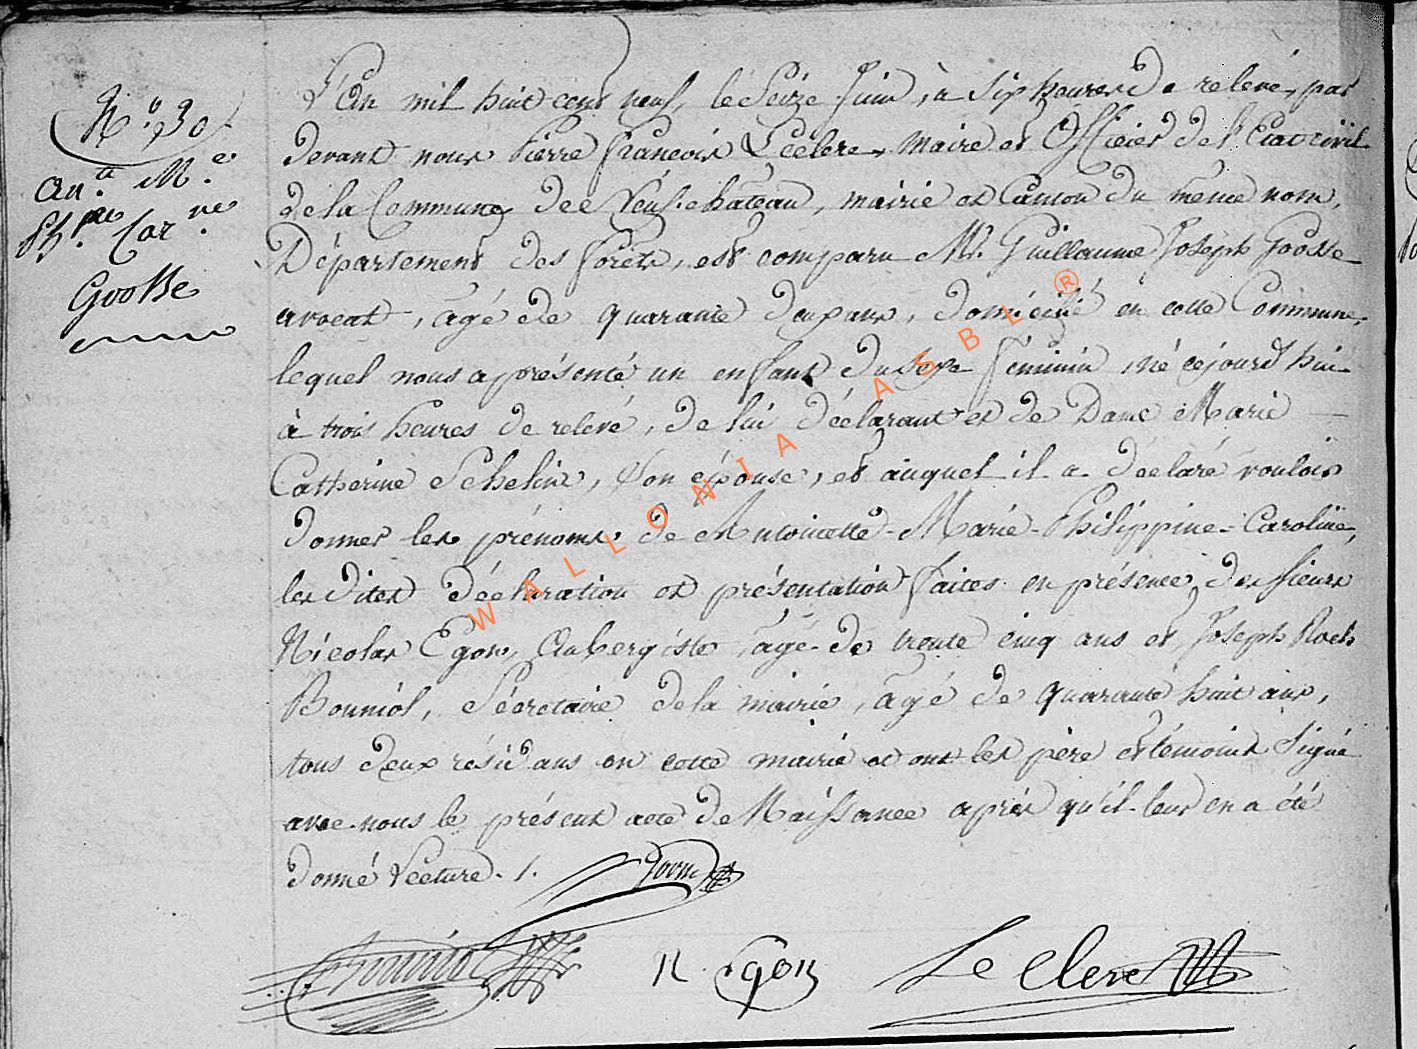 N.º 30
An.tte M.e
Ph.pne Car.ne
Goosse
L'an mil huit cent neuf, le Seize Juin, à Six heures de relevé, par
devant nous Pierre François Leclere, Maire et Officier de l'Etat civil
de la Commune de Neufchateau, mairie et Canton du même nom,
Département des forêts, est comparu Mr. Guillaume Joseph Goosse
avocat, âgé de quarante deux ans, domicilié en cette Commune,
lequel nous a présenté un enfant du Sexe féminin, né cejourd'hui
à trois heures de relevé, de lui déclarant et de Dame Marie
Catherine Schelin, Son épouse, et auquel il a déclaré vouloir
donner les prénoms de Antoinette-Marie-Philippine-Caroline,
les dites déclaration et présentation faites en présence des Sieurs
Nicolas Egon, Aubergiste, âgé de trente cinq ans et Joseph Roch
Bouniol, Sécretaire de la mairie, âgé de quarante huit ans,
tous deux résidans en cette mairie et ont les père et témoins Signé
avec nous le présent acte de Naissance après qu'il leur en a été
donné Lecture. /.
Bouniol N. Egon Le Clere
WALLONIA ASBL ®